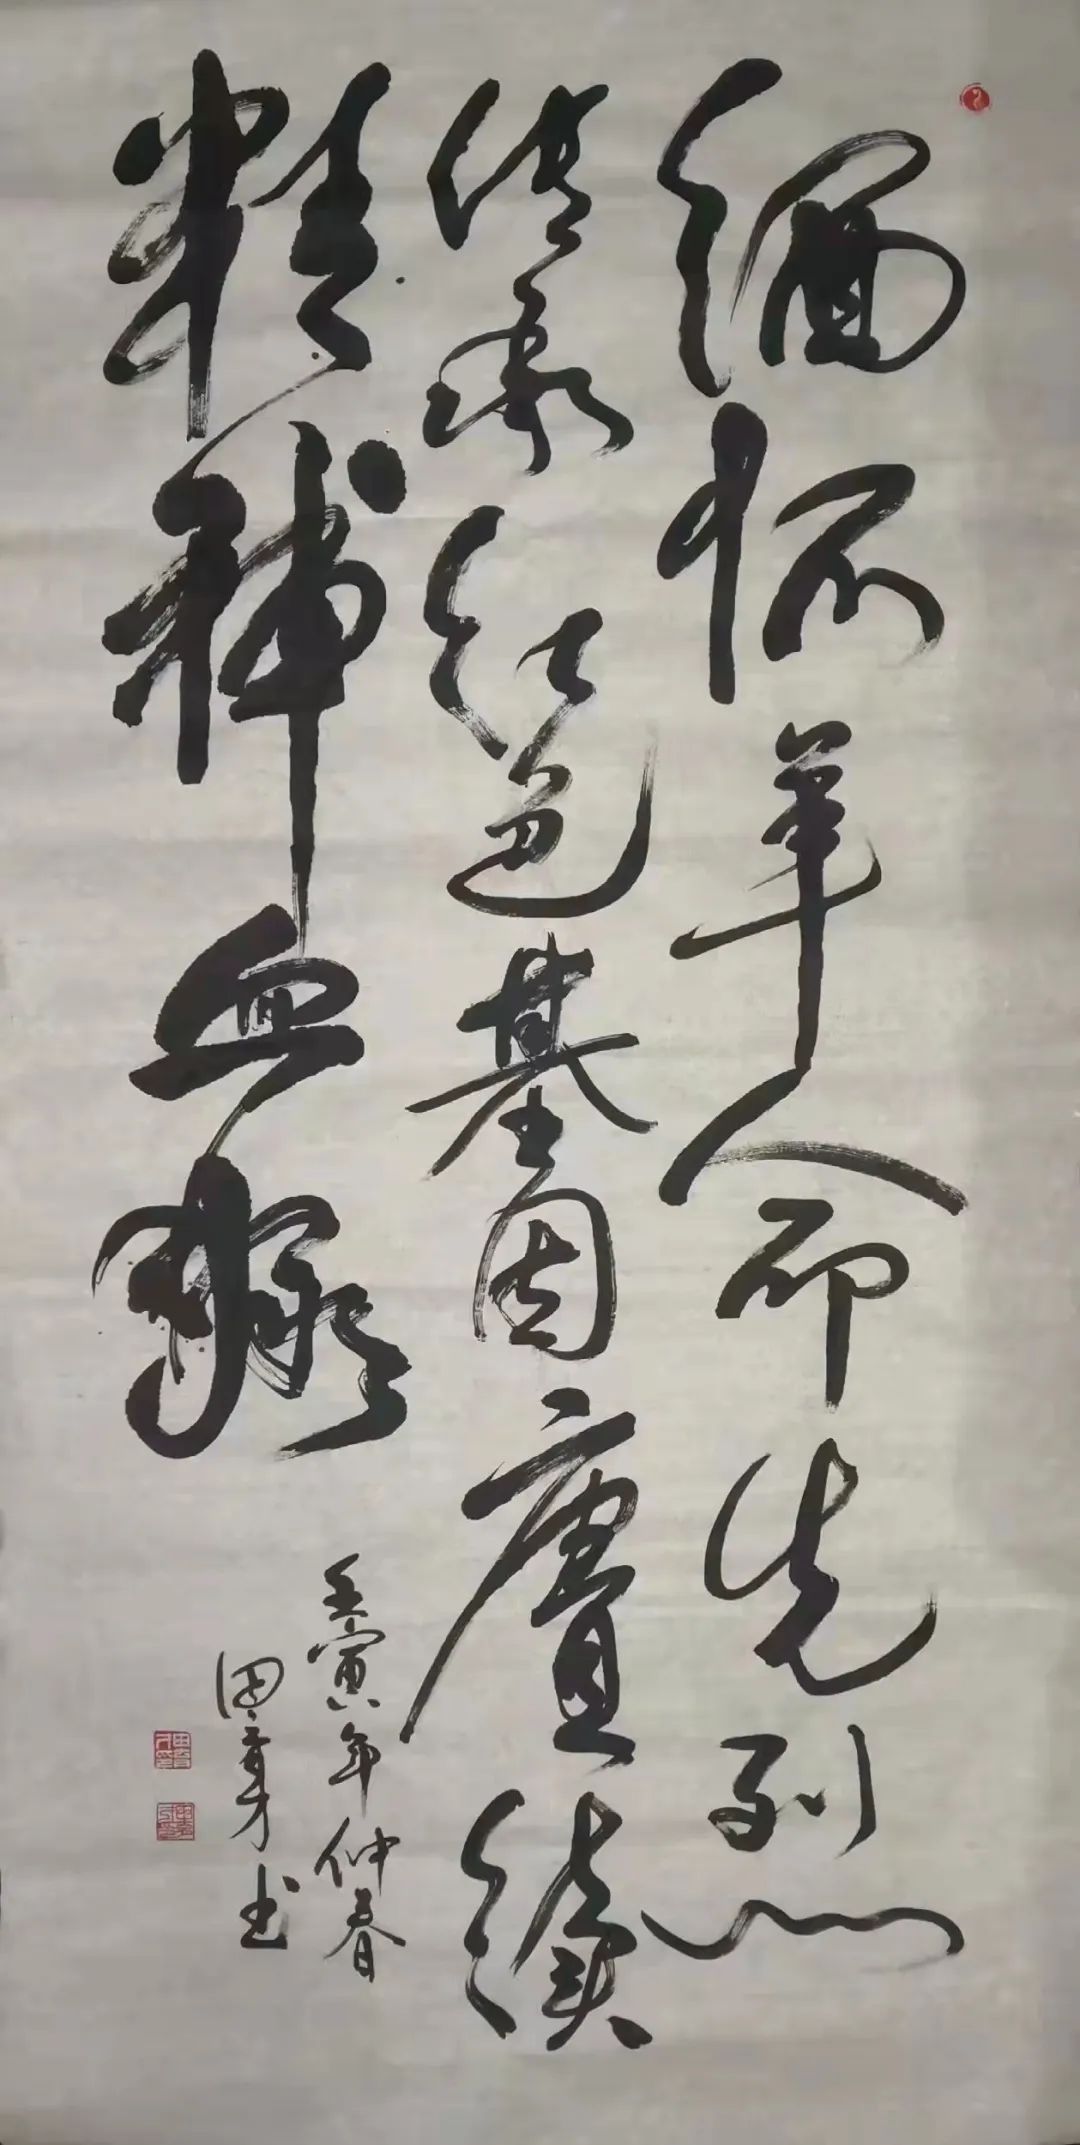 缅怀革命先烈
传承红色基因賡續
精神血脉
壬寅年仲春
田育才书